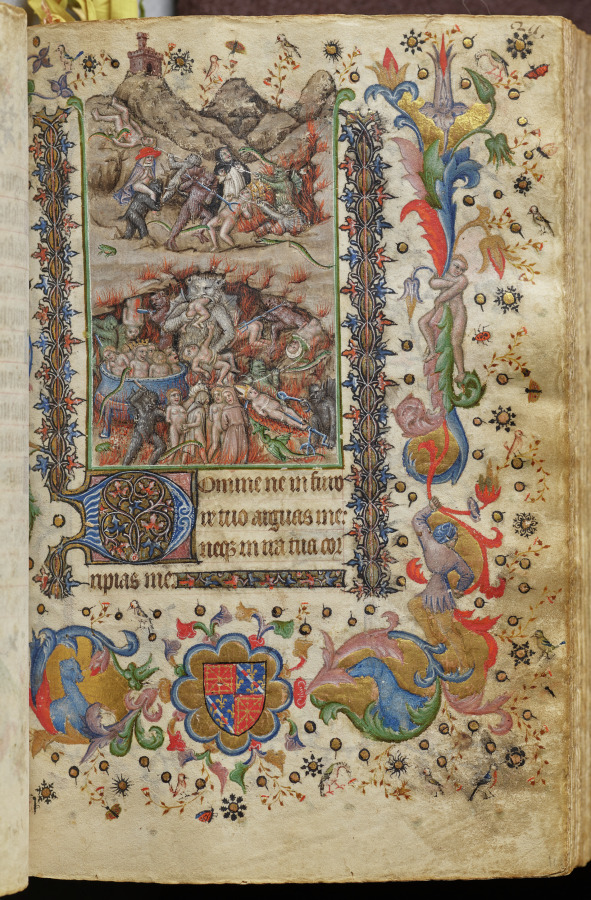 Domine ne in furo
re tuo arguas me:
neqꝫ in ira tua cor
ripias me.